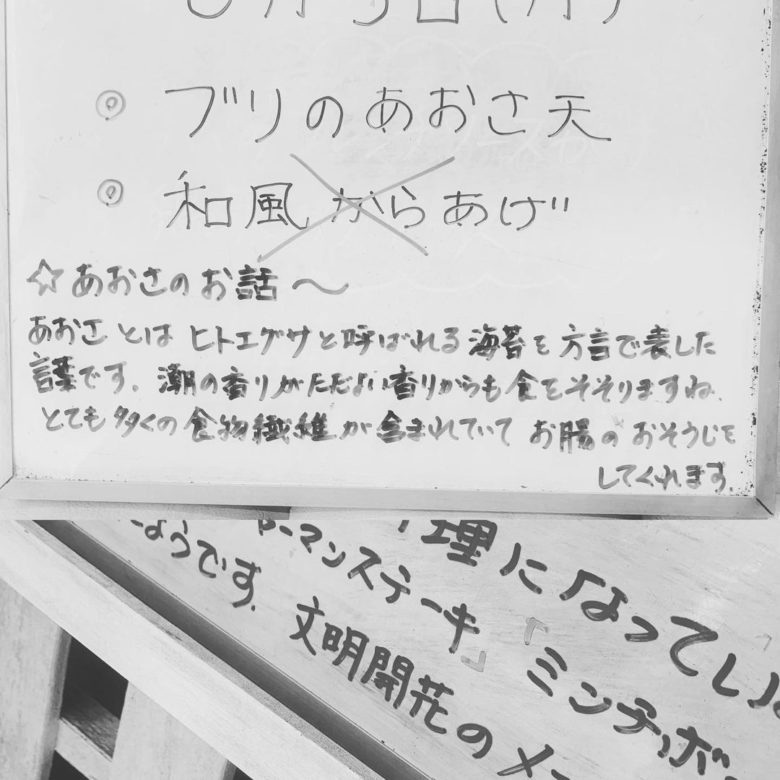 ◎ ブリのあおさ天
◎ 和風からあげ
☆あおさのお話〜
あおさとはヒトエグサと呼ばれる海苔を方言で表した
言葉です。潮の香りがただよい香りからも食をそそりますね。
とても多くの食物繊維が含まれていてお腸のおそうじを
してくれます。
理になってい
ーマンステーキ」「ミンチボ
ようです。文明開花のメ